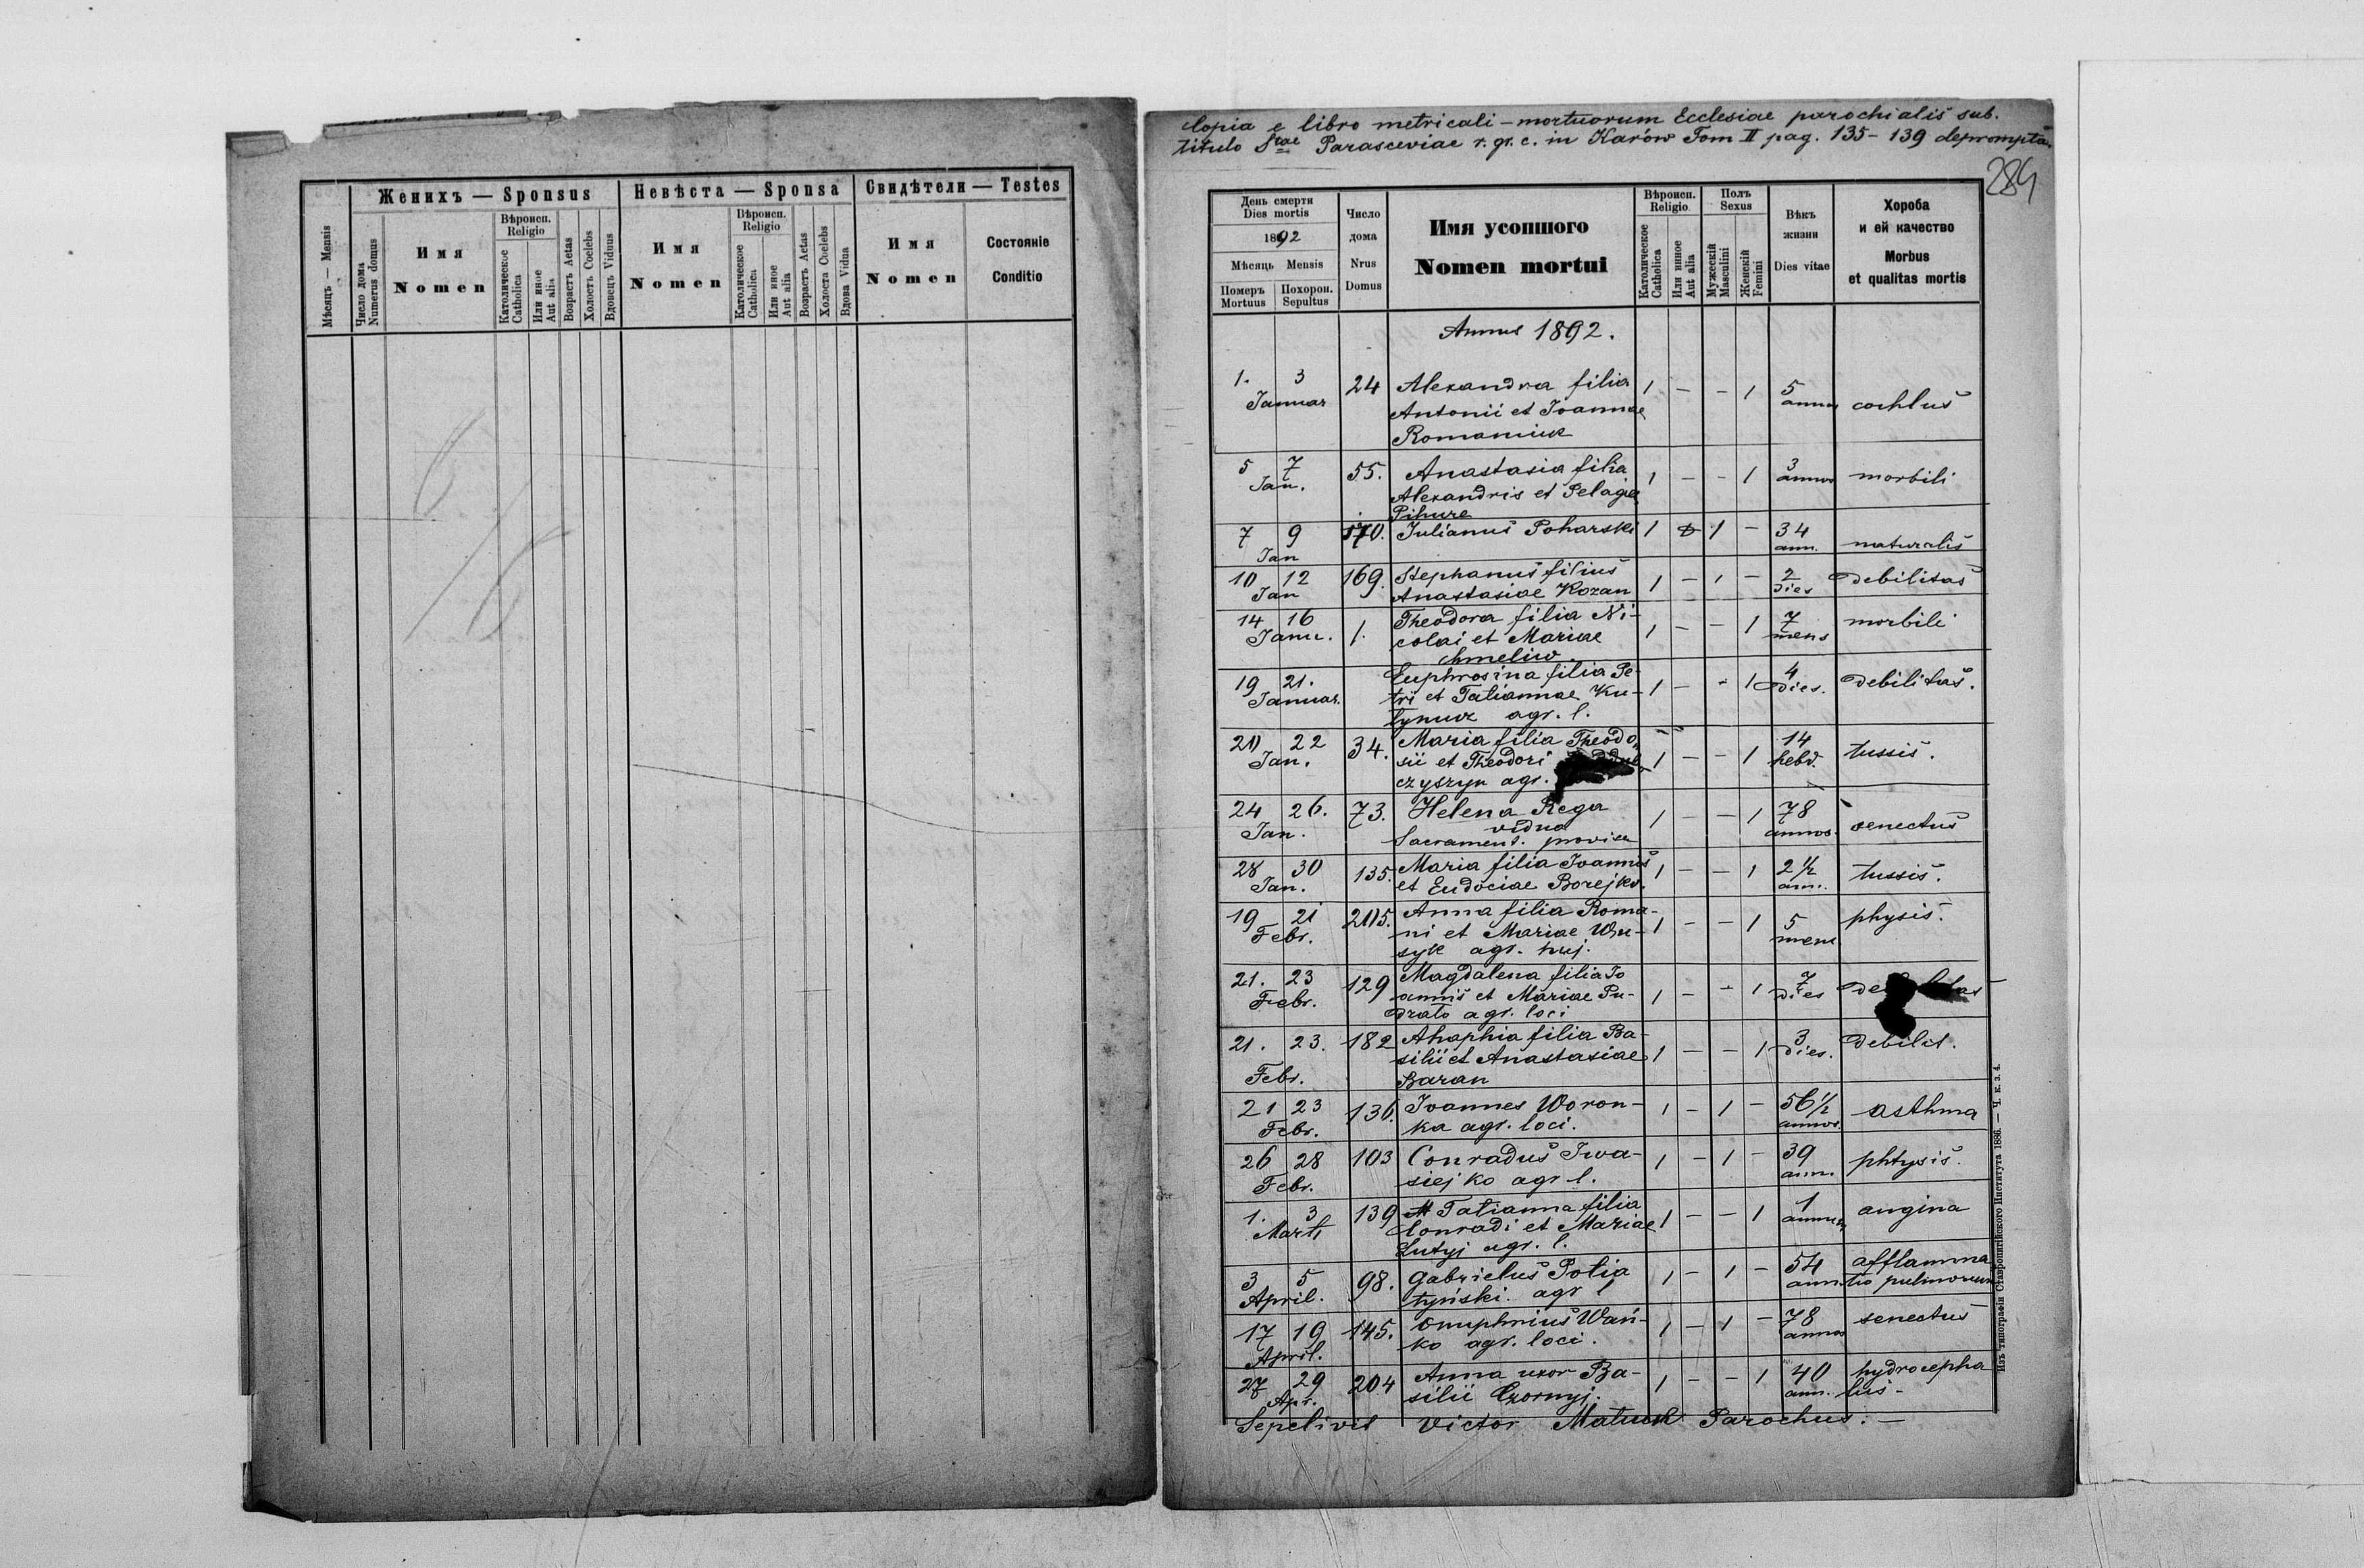 Женихъ — Sponsus
Невѣста — Sponsa
Свидѣтели — Testes
Мѣсяцъ — Mensis
Число дома
Numerus domus
Имя
Nomen
Вѣроисп.
Religio
Католическое
Catholica
Или иное
Aut alia
Возрастъ Aetas
Холостъ Coelebs
Вдовецъ Viduus
Имя
Nomen
Вѣроисп.
Religio
Католическое
Catholica
Или иное
Aut alia
Возрастъ Aetas
Холоста Coelebs
Вдова Vidua
Имя
Nomen
Состояніе
Conditio
Copia e libro metricali - mortuorum Ecclesiae parochialis sub.
titulo Stae Parasceviae r. gr. c. in Karów Tom II pag. 135 - 139 deprompta.
284
День смерти
Dies mortis
1892
Мѣсяць Mensis
Померъ
Mortuus
Похорон.
Sepultus
Число
дома
Nrus
Domus
Имя усопшого
Nomen mortui
Вѣроисп.
Religio
Католическое
Catholica
Или иное
Aut alia
Полъ
Sexus
Мужескій
Masculini
Женскій
Femini
Вѣкъ
жизни
Dies vitae
Хороба
и ей качество
Morbus
et qualitas mortis
Annus 1892.
1. 3 24 Alexandra filia 1 - - 1 5
Januar Antonii et Joannae annos
Romaniuk
5 7 55. Anastasia filia 1 - - 1 3 morbili
Jan. Alexandris et Pelagiae annos
Pihure
7 9 170. Julianus Poharski 1 1 - 34
Jan ann. naturalis
10 12 169. Stephanus filius 1 - 1 - 2 debilitas
Jan Anastasiae Kozan dies
14 16 1. Theodora filia Ni- 1 - - 1 7 morbili
Janu. colai et Mariae mens
Chmeliw.
19 21. Euphrosina filia Pe- 1 - - 1 4 debilitas.
Januar. tri et Tatiannae Ku- dies.
agr. l.
20 22 34. Maria filia Theodo- 1 - - 1 14 tussis.
Jan. sii et Theodori hebd.
czyszyn agr.
24 26. 73. Helena Rega 1 - - 1 78 senectus
Jan. vidua annos.
Sacrament. provisa
28 30 135. Maria filia Joannis 1 - - 1 2 1/2 tussis.
Jan. et Eudociae Borejko. ann.
19 21 205. Anna filia Roma- 1 - - 1 5 physis.
Febr. ni et Mariae Wru- mens
syk agr. huj.
21. 23 129 Magdalena filia Jo 1 - - 1 7
Febr. annis et Mariae Pu- dies
drato agr. loci
21. 23. 182 Ahaphia filia Ba- 1 - - 1 3 debilit.
silii et Anastasiae dies.
Febr. Baran
21 23 136. Joannes Woron- 1 - 1 - 56 1/2 asthma
Febr. ka agr. loci. annos.
26 28 103 Conradus Iwa- 1 - 1 - 39 phtysis.
Febr. siejko agr l. ann.
1. 3 139 Tatianna filia 1 - - 1 1 angina
Marti Conradi et Mariae annum
Lutyj agr. l.
3 5 98. Gabrielus Potia 1 - 1 - 54 afflamma
April. tyński. agr l ann. tio pulmorum
17 19 145. Onuphrius Wań- 1 - 1 - 78 senectus
April. ko agr. loci. annos
27 29 204 Anna uxor Ba- 1 - - 1 40 hydrocepha
Apr. silii Czornyj. ann. lus-
Sepelivit Victor Matiuk Parochus. -
Изъ типографіи Ставропигійского Института 1886. — Ч. к. з. 4.